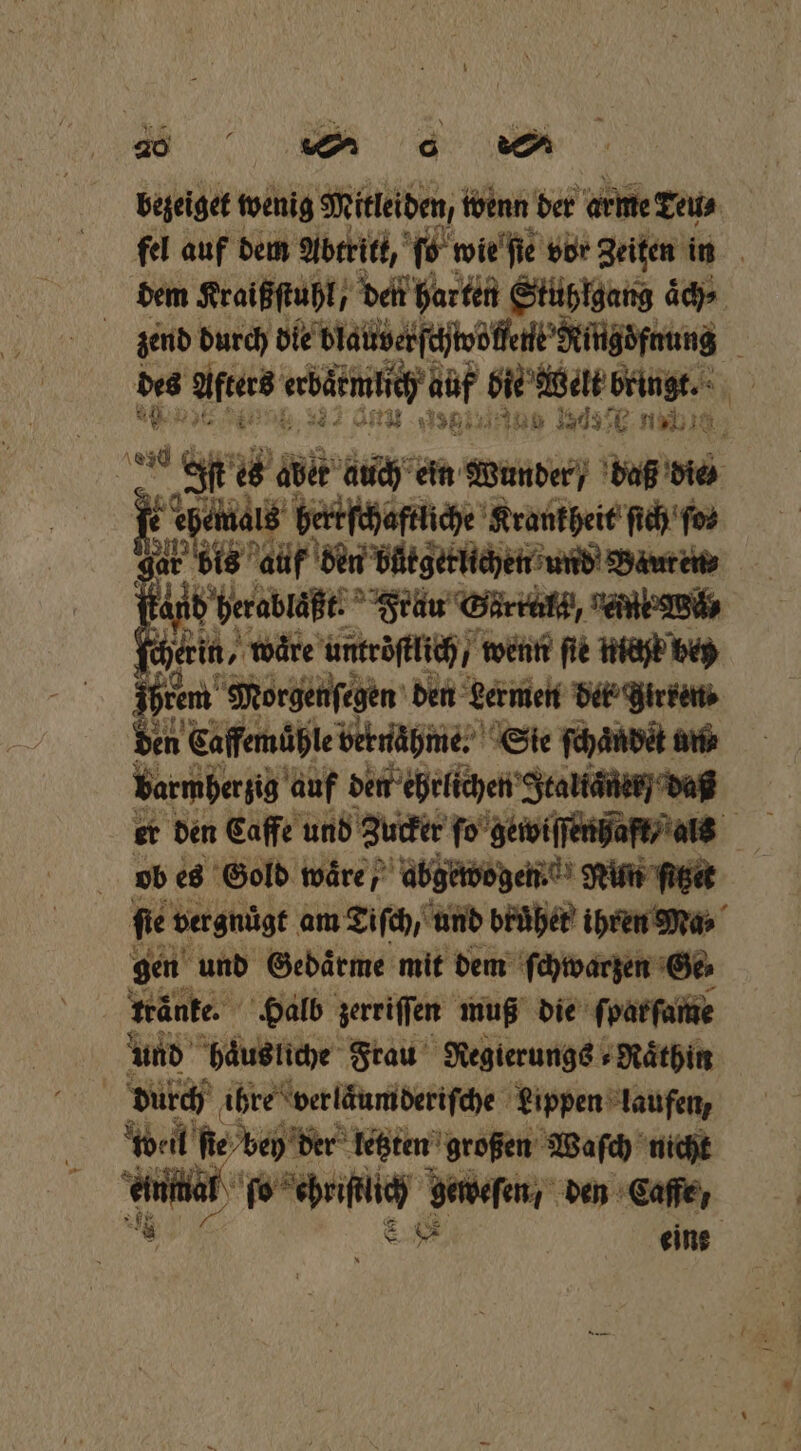 20
bezeiget wenig Mitleiden, wenn der arme Teu⸗
fel auf dem Abtritt, ſo wie ſie vor Zeiten in
dem Kraißſtuhl, den harten Stuhlgang aͤch⸗
zend durch die blauverſchwollene Ringoͤfnung
des Afters erbaͤrmlich auf die Welt bringt.
Iſt es aber auch ein Wunder, daß die⸗
ſe ehemals herrſchaftliche Krankheit ſich ſo⸗
gar bis auf den buͤrgerlichen und Bauren⸗
ſtand herablaͤßt. Frau eine Waͤ⸗
ſcherin, waͤre untroͤſtlich, wenn ſie nicht bey
ihrem Morgenſegen den Lermen der girren⸗
den Caffemuͤhle vernaͤhme. Sie ſchaͤndet un⸗
barmherzig auf den ehrlichen Italiaͤner, daß
er den Caffe und Zucker ſo gewiſſenhaft, als
ob es Gold waͤre, abgewogen. Nun ſitzet
ſie vergnuͤgt am Tiſch, und bruͤhet ihren Ma⸗
gen und Gedaͤrme mit dem ſchwarzen Ge⸗
traͤnke. Halb zerriſſen muß die ſparſame
und haͤusliche Frau Regierungs⸗Raͤthin
durch ihre verlaͤumderiſche Lippen laufen,
weil ſie bey der letzten großen Waſch nicht
einmal ſo chriſtlich geweſen, den Caffe,
eine